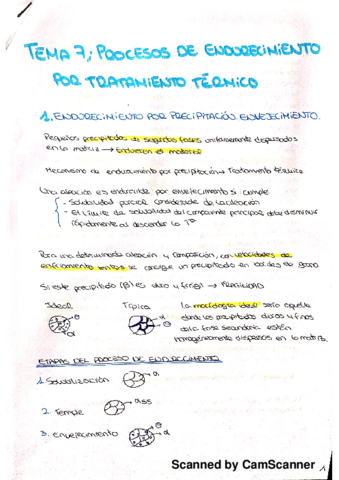 TEMA 7; PROCESOS DE ENDURECIMIENTO
POR TRATAMIENTO TÉRMICO
1. ENDURECIMIENTO POR PRECIPITACIÓN ENVEJECIMIENTO.
Pequeños precipitados de segundas fases uniformemente dispersados
en la matriz → Endurecen el material
Mecanismo de endurecimiento por precipitación → Tratamiento térmico
Una aleación es endurecible por envejecimiento si cumple
- Solubilidad parcial considerable de la aleación
- El límite de solubilidad del componente principal debe disminuir
rápidamente al descender la Tª
Para una determinada aleación y composición, con velocidades de
enfriamiento lentas se consigue un precipitado en bordes de grano
Si este precipitado (β) es duro y frágil → FRAGILIDAD
Ideal Típica
θ α θ α
la morfología ideal sería aquella
donde los precipitados duros y finos
de la fase secundaria estén
homogéneamente dispersos en la matriz.
ETAPAS DEL PROCESO DE ENDURECIMIENTO
1. Solubilización α
2. Temple αss
3. Envejecimiento θ α
Scanned by CamScanner